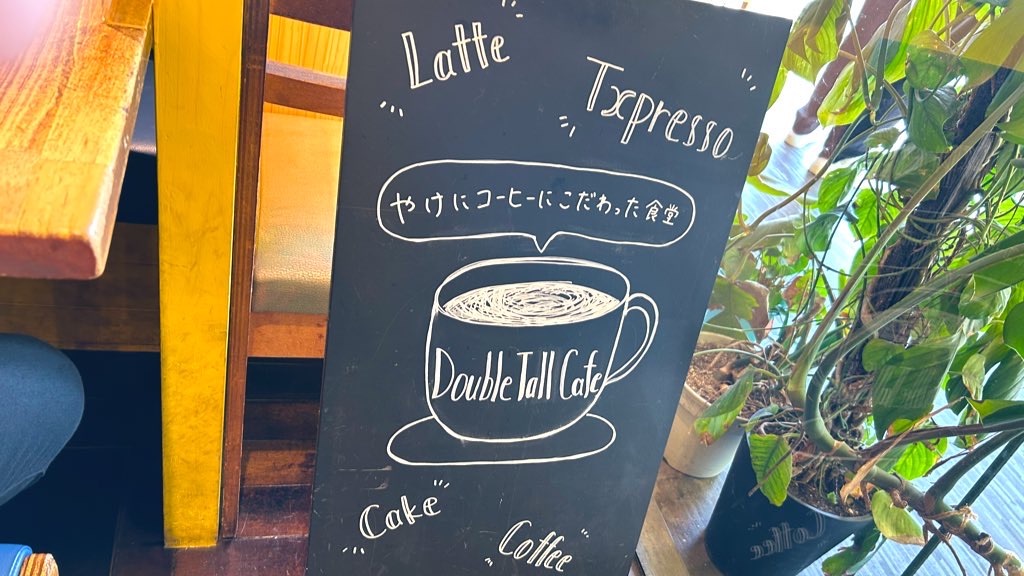 Latte
Txpresso
やけにコーヒーにこだわった食堂
Double Tall Cafe
Cake
Coffee
Coffee